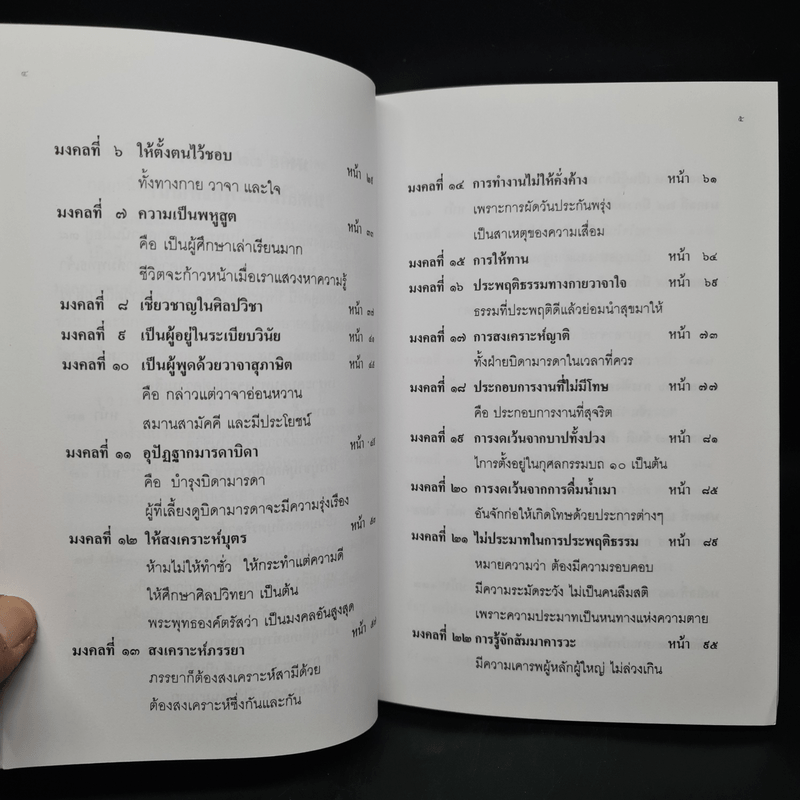 ๔
มงคลที่ ๖ ให้ตั้งตนไว้ชอบ หน้า
ทั้งทางกาย วาจา และใจ
มงคลที่ ๗ ความเป็นพหูสูต หน้า
คือ เป็นผู้ศึกษาเล่าเรียนมาก
ชีวิตจะก้าวหน้าเมื่อเราแสวงหาความรู้
มงคลที่ ๘ เชี่ยวชาญในศิลปวิชา หน้า
มงคลที่ ๙ เป็นผู้อยู่ในระเบียบวินัย หน้า
มงคลที่ ๑๐ เป็นผู้พูดด้วยวาจาสุภาษิต หน้า
คือ กล่าวแต่วาจาอ่อนหวาน
สมานสามัคคี และมีประโยชน์
มงคลที่ ๑๑ อุปัฏฐากมารดาบิดา หน้า
คือ บำรุงบิดามารดา
ผู้ที่เลี้ยงดูบิดามารดาจะมีความรุ่งเรือง
มงคลที่ ๑๒ ให้สงเคราะห์บุตร หน้า
ห้ามไม่ให้ทำชั่ว ให้กระทำแต่ความดี
ให้ศึกษาศิลปวิทยา เป็นต้น
พระพุทธองค์ตรัสว่า เป็นมงคลอันสูงสุด
มงคลที่ ๑๓ สงเคราะห์ภรรยา หน้า
ภรรยาก็ต้องสงเคราะห์สามีด้วย
ต้องสงเคราะห์ซึ่งกันและกัน
๕
มงคลที่ ๑๔ การทำงานไม่ให้คั่งค้าง หน้า ๖๑
เพราะการผัดวันประกันพรุ่ง
เป็นสาเหตุของความเสื่อม
มงคลที่ ๑๕ การให้ทาน หน้า ๖๔
มงคลที่ ๑๖ ประพฤติธรรมทางกายวาจาใจ หน้า ๖๙
ธรรมที่ประพฤติดีแล้วย่อมนำสุขมาให้
มงคลที่ ๑๗ การสงเคราะห์ญาติ หน้า ๗๓
ทั้งฝ่ายบิดามารดาในเวลาที่ควร
มงคลที่ ๑๘ ประกอบการงานที่ไม่มีโทษ หน้า ๗๗
คือ ประกอบการงานที่สุจริต
มงคลที่ ๑๙ การงดเว้นจากบาปทั้งปวง หน้า ๘๑
ไการตั้งอยู่ในกุศลกรรมบถ ๑๐ เป็นต้น
มงคลที่ ๒๐ การงดเว้นจากการดื่มน้ำเมา หน้า ๘๕
อันจักก่อให้เกิดโทษด้วยประการต่างๆ
มงคลที่ ๒๑ ไม่ประมาทในการประพฤติธรรม หน้า ๘๙
หมายความว่า ต้องมีความรอบคอบ
มีความระมัดระวัง ไม่เป็นคนลืมสติ
เพราะความประมาทเป็นหนทางแห่งความตาย
มงคลที่ ๒๒ การรู้จักสัมมาคารวะ หน้า ๙๕
มีความเคารพผู้หลักผู้ใหญ่ ไม่ล่วงเกิน